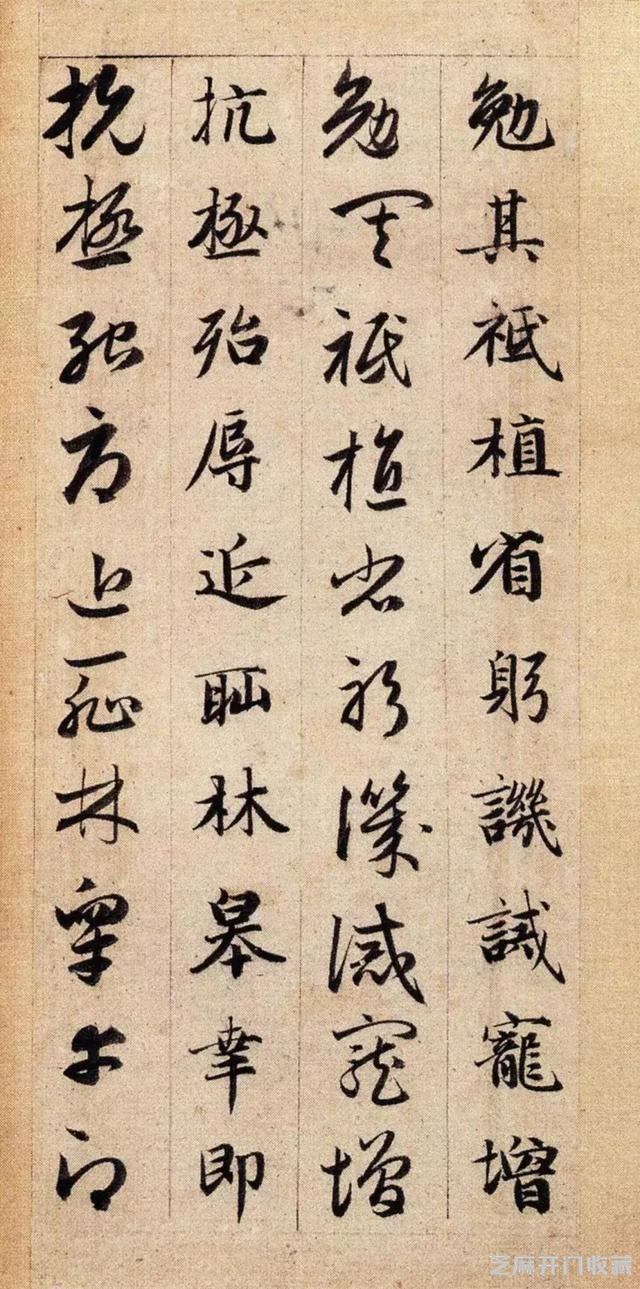 勉其祗植省躬譏誡寵增
勉其祗植省躬譏誡寵增
抗極殆辱近恥林皋幸即
抗極殆辱近恥林皋幸即
芝麻开门收藏